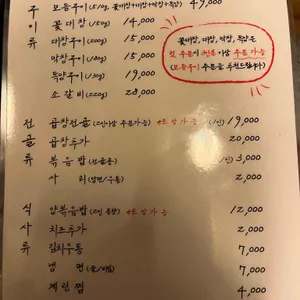 주 모듬구이(510g, 꽃대창+대창+막창+특양) 49,000
이 꽃대창 (150g) 14,000
류 대창구이(200g) 15,000
막창구이(150g) 15,000
특양구이(150g) 19,000
소갈비(220g) 28,000
꽃대창, 대창, 막창, 특양은
첫 주문시 3인분 이상 주문 가능
(모듬구이 주문을 추천드립니다)
전 곱창전골(2인 이상 주문가능) *포장가능 (1인) 19,000
골 곱창추가 20,000
류 볶음밥(전골용) (1인) 3,000
사리(당면/우동) 2,000
식 양볶음밥(2인 분량) *포장가능 12,000
사 치즈추가 2,000
류 김치우동 7,000
냉면(물/비빔) 7,000
계란찜 4,000